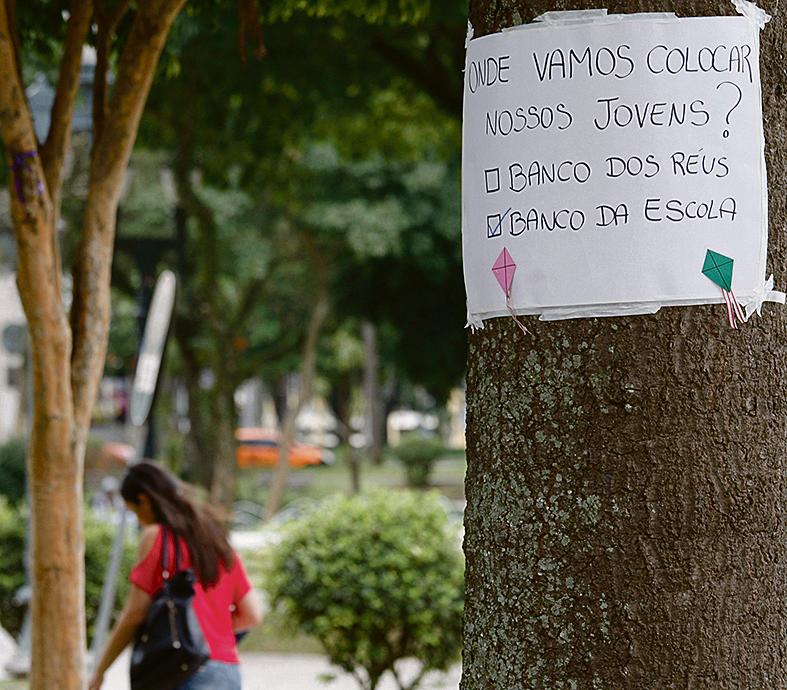 ONDE VAMOS COLOCAR
NOSSOS JOVENS?
☐ BANCO DOS RÉUS
☑ BANCO DA ESCOLA